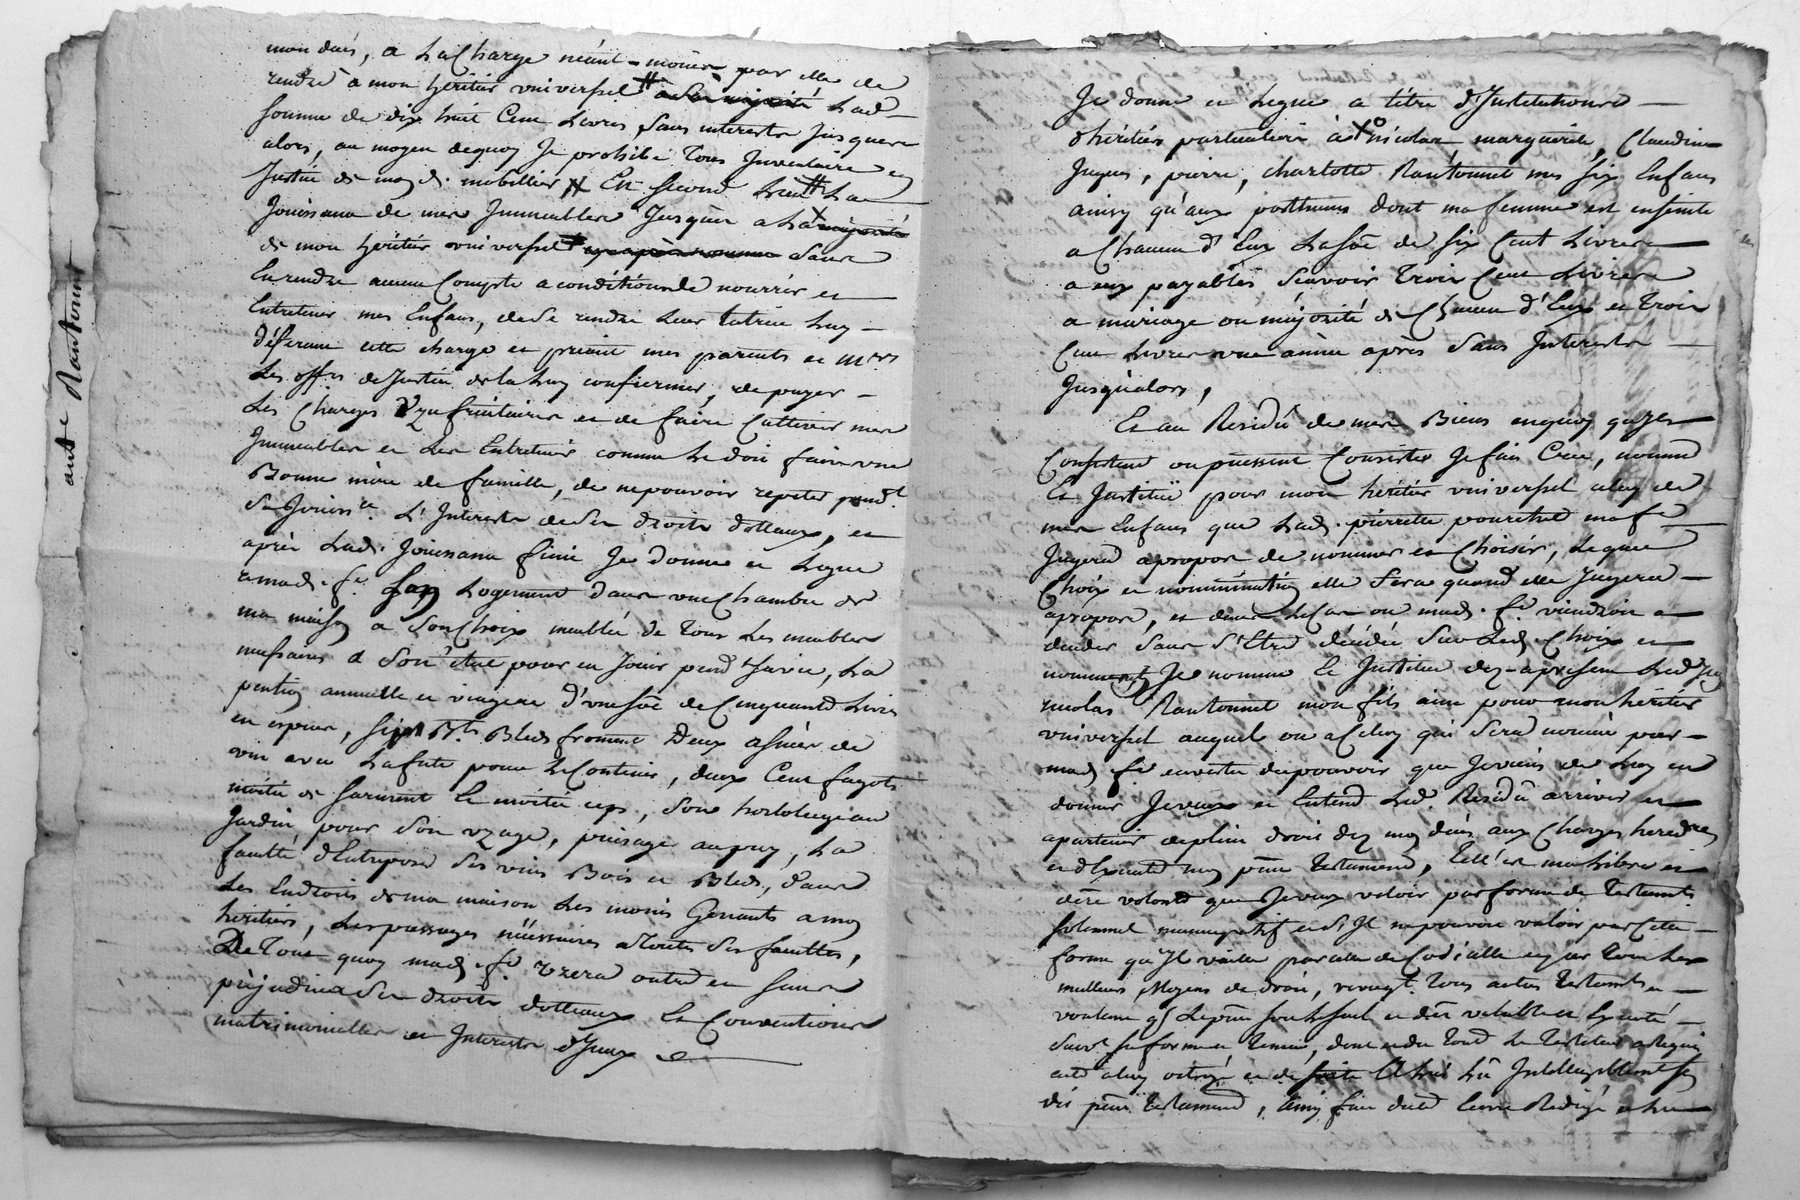 mon décés, a La Charge néant-moins par elle de
rendre a mon héritier universel # a Sa majorité Lad.
Somme de dix huit Cent Livres Sans interests jusques
alors, au moyen dequoy Je prohibe Tous Inventaire en
Justice de mond. mobillier # Et Second Lieu # La
Jouissance de mes Immeubles Jusques a La majorité
de mon héritier universel Sans
En rendre aucun Compte a condition de nourrir et
Entretenir mes Enfans, de Se rendre Leur tutrice Luy
déferant cette charge et priant mes parents et Mrs
Les offrs de Justice de la Luy confirmer, de payer
Les Charges Vzufruitaires et de faire Cultiver mes
Immeubles et Les Entretenir comme Le doit faire une
Bonne mère de famille, de ne pouvoir repeter pendt
Sa Jouissce L'Interests de Ses droits dottaux, et
après Lad. Jouissance finie Je donne et Legue
a mad. fe Son Logement dans une Chambre de
ma maison a Son Choix meublée de Tous Les meubles
nessaires a Son état pour en Jouir pendt Sa vie, La
pention annuelle et viagere d'une Soe de Cinquante Livres
en espèces, Bleds froment Deux asnées de
vin avec La futte pour Le Contenir, deux Cent fagots
moitié de Sarment Et moitié ceps, Son hortolage au
Jardin pour Son vzage, puisage au puy, La
faculté d'Entreposer Ses vins Bois et Bleds, dans
Les Endroits de ma maison Les moins Genants a mon
héritier, Les passages néessaires a Toutes Ses facultés,
De Tous quoy mad. fe vzera outre et Sans
préjudice de Ses droits dottaux Et Conventions
matrimonialles et Interests d'Iceux
ant e Rantonnet
Je donne et Legue a titre d'Institution
d'héritiers particuliere à Nicolas marguerite, Claudine
Jaques, pierre, charlotte Rantonnet mes Six Enfans
ainsy qu'aux posthumes dont ma femme est enSeinte
a Chacun d'Eux La Soe de Six Cent Livres
a eux payables Scavoir Trois Cent Livres
a mariage ou majorité de Chacun d'Eux et Trois
Cent Livres une année après Sans Interests
Jusqu'alors,
Et au Residû de mes Biens en quoy qu'Ils
Consistent ou puissent Consister Je fais Crée, nomme
Et Institue pour mon héritier universel celuy de
mes Enfans que Lad. pierrette pourchet ma fe
Jugera apropos de nommer et Choisir, Lequel
Choix et nommination elle Fera quand elle Jugera
apropos, et dans Le Cas ou mad. fe viendroit a
deceder Sans S'Etre décidée Sur Led. Choix et
nommant Je nomme Et Institue dez-apresent Led.
nicolas Rantonnet mon fils ainé pour mon héritier
universel auquel ou a Celuy qui Sera nommé par
mad. fe en vertu du pouvoir que Je viens de Luy en
donner Je veux et Entend Led. Residû arriver et
apartenir de plein droit dez mon décés aux Charges
et d'Executer mon pnt Testament, Tell'est ma Libre et
dere volonté que Je veux valoir par forme de Testamt
Solennel nuncupatif et S'Il ne pouvoit valoir par Cette
forme qu'Il vaille par celle de Codicille et par Tous Les
meilleurs Moyens de droit, revoqt Tous autres Testamts
voulant q. Le pnt Soit Le Seul et der valable et Executé
Suivt Sa forme et Teneur, dont et du Tout Le Testateur a requis
acte a luy octroyé et de Suite a été Lû Intelligiblement
du pnt Testament, ainsy fait dicté leu et Redigé